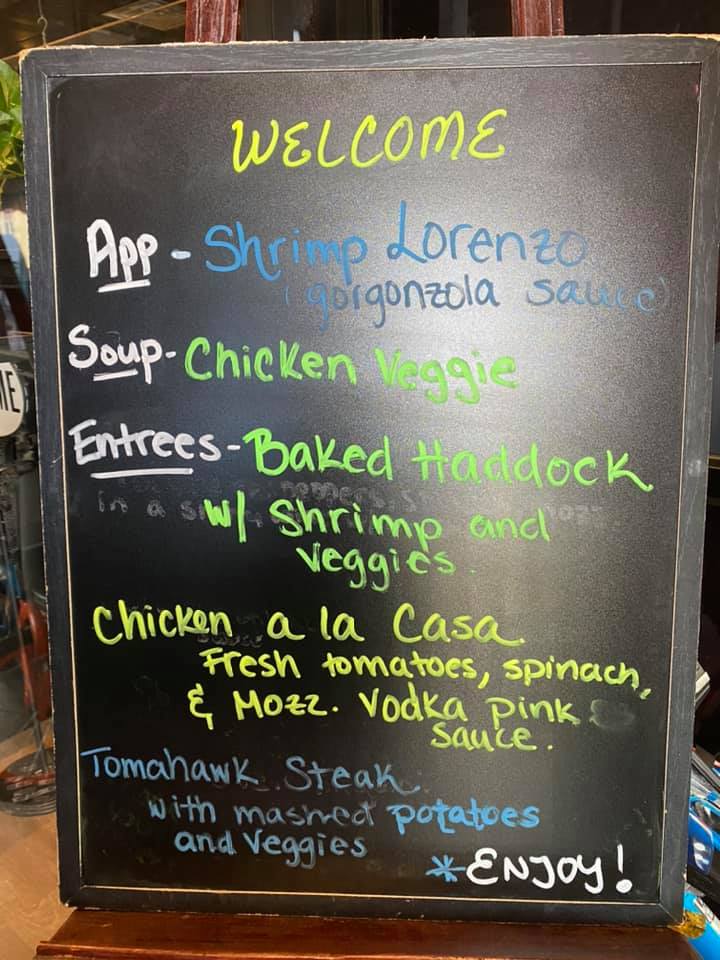 WELCOME
App - Shrimp Lorenzo
(gorgonzola sauce)
Soup - Chicken Veggie
Entrees - Baked Haddock
w/ Shrimp and
Veggies.
Chicken a la Casa
Fresh tomatoes, spinach,
& Mozz. Vodka pink
sauce.
Tomahawk Steak
with mashed potatoes
and Veggies
*ENJOY!